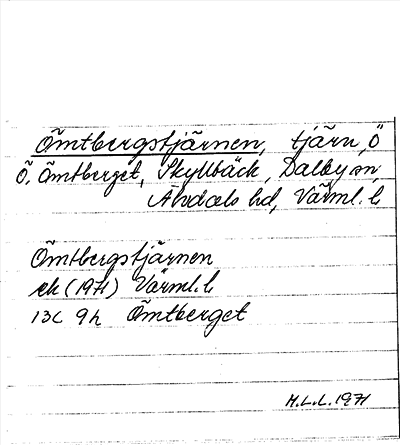 Ömtbergstjärnen, tjärn, Ö
Ö. Ömtberget, Skyllbäck, Dalby sn,
Älvdals hd, Värml. l
Ömtbergstjärnen
ek (1971) Värml. l
13C 9h Ömtberget
M.L.L. 1971